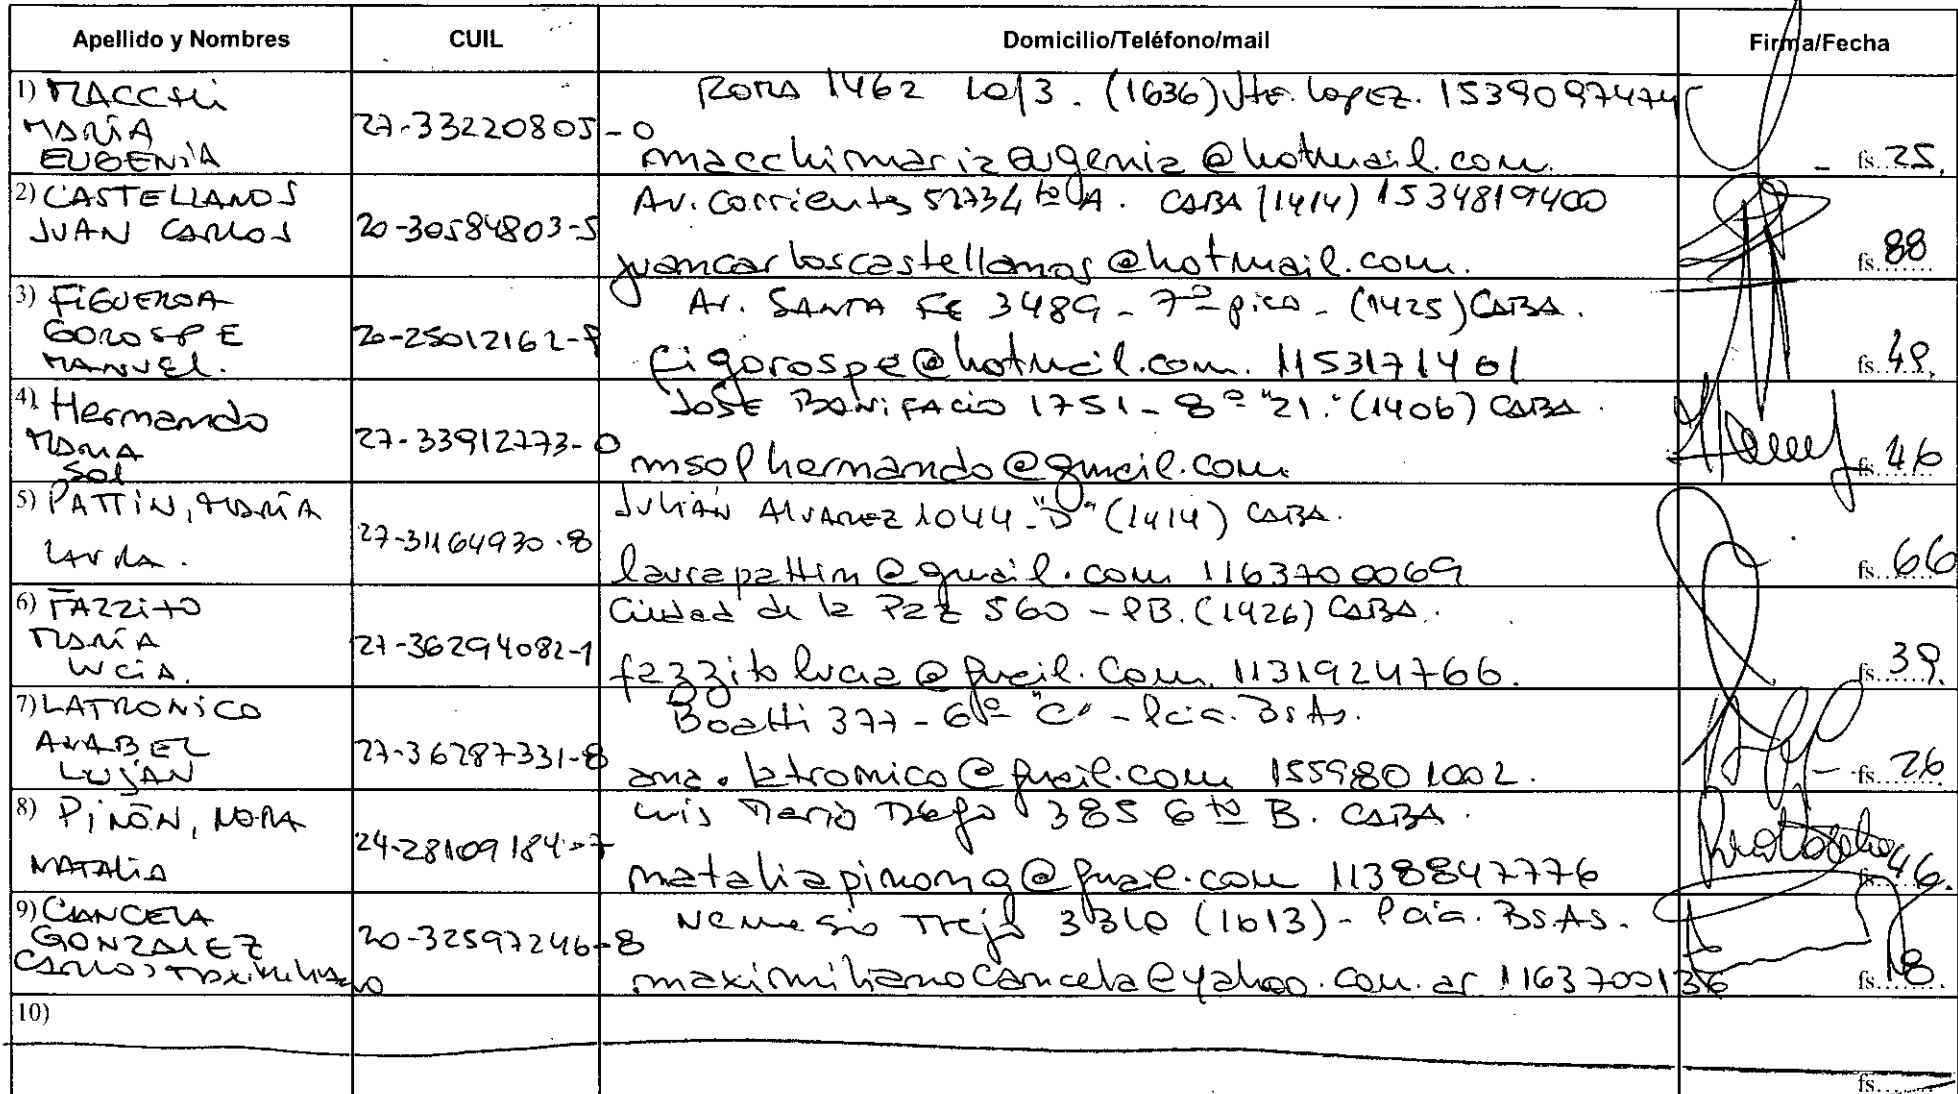 Apellido y Nombres CUIL Domicilio/Teléfono/mail Firma/Fecha
1) MACCHI
MARÍA
EUGENIA
27-33220805-0
Roma 1462 (1636) Vte. Lopez. 1539097474
macchimariaeugenia@hotmail.com
fs. 25,
2) CASTELLANOS
JUAN CARLOS
20-30584803-5
Av. Corrientes CABA (1414) 1534819400
juancarloscastellanos@hotmail.com.
fs. 88
3) FIGUEROA
GOROSPE
MANUEL.
20-25012162-
Av. SANTA FE 3489 - 7º piso - (1425) CABA.
figorospe@hotmail.com. 1153171461
fs. 49,
4) Hernando
MARIA
Sol
27-33912773-0
JOSE BONIFACIO 1751 - 8º "21." (1406) CABA.
msolhernando@gmail.com
fs. 46
5) PATTIN, MARÍA
LAURA.
27-31164930-8
JULIÁN ALVAREZ 1044 - "D" (1414) CABA.
laurapattin@gmail.com 1163700069
fs. 66
6) FAZZITO
MARÍA
LUCÍA.
27-36294082-1
Ciudad de la Paz 560 - PB. (1426) CABA.
fazzitolucia@gmail.com. 1131924766.
fs. 39.
7) LATRONICO
ANABEL
LUJÁN
27-36287331-8
Boatti 377 - 6º "C" - Pcia. Bs As.
ana.latronico@gmail.com 1559801002.
fs. 26.
8) PIÑÓN, NORA
NATALIA
24-28109184-7
Luis María Drago 385 6to B. CABA.
nataliapinong@gmail.com 1138847776
fs. 46.
9) CANCELA
GONZALEZ
CARLOS MAXIMILIANO
20-32597246-8
Nemesio Trejo 3310 (1613) - Pcia. BS.AS.
maximilianocancela@yahoo.com.ar 1163700136
fs. 18.
10)
fs.